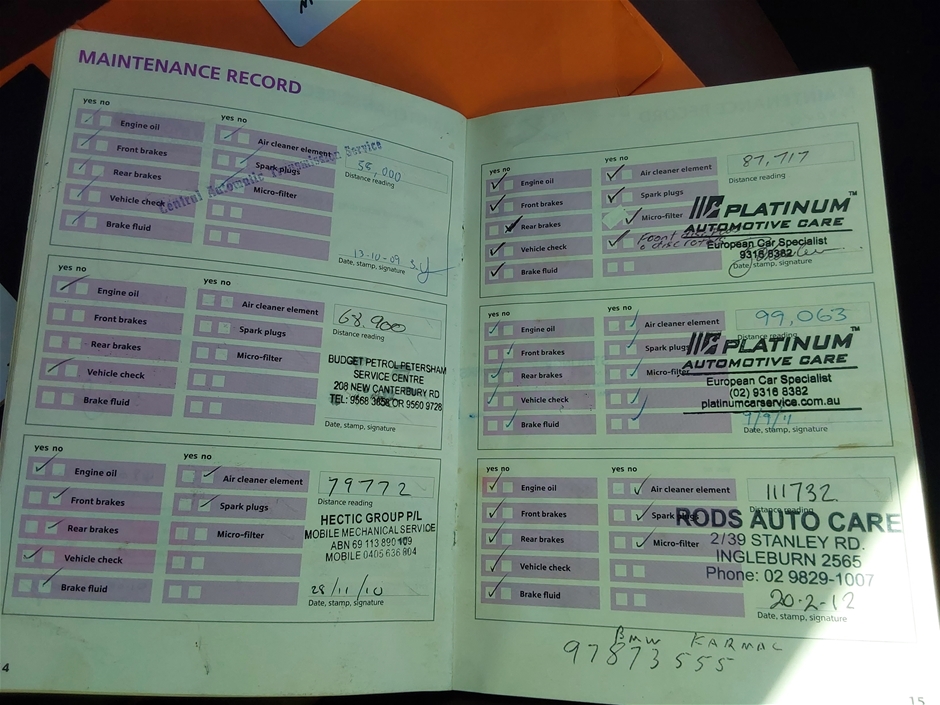 MAINTENANCE RECORD
yes no
Engine oil
Front brakes
Rear brakes
Vehicle check
Brake fluid
yes no
Air cleaner element
Spark plugs
Micro-filter
Central Automatic Transmission Service
55,000
Distance reading
13-10-09
Date, stamp, signature
yes no
Engine oil
Front brakes
Rear brakes
Vehicle check
Brake fluid
yes no
Air cleaner element
Spark plugs
Micro-filter
68.900
Distance reading
BUDGET PETROL PETERSHAM
SERVICE CENTRE
208 NEW CANTERBURY RD
TEL: 9568 3658 OR 9560 9728
Date, stamp, signature
yes no
Engine oil
Front brakes
Rear brakes
Vehicle check
Brake fluid
yes no
Air cleaner element
Spark plugs
Micro-filter
79772
Distance reading
HECTIC GROUP P/L
MOBILE MECHANICAL SERVICE
ABN 69 113 890 109
MOBILE 0405 636 804
28/11/10
Date, stamp, signature
4
yes no
Engine oil
Front brakes
Rear brakes
Vehicle check
Brake fluid
yes no
Air cleaner element
Spark plugs
Micro-filter
Front
87,717
Distance reading
PLATINUM™
AUTOMOTIVE CARE
European Car Specialist
9316 8382
Date, stamp, signature
yes no
Engine oil
Front brakes
Rear brakes
Vehicle check
Brake fluid
yes no
Air cleaner element
Spark plugs
Micro-filter
99,063
Distance reading
PLATINUM™
AUTOMOTIVE CARE
European Car Specialist
(02) 9316 8382
platinumcarservice.com.au
9/9/11
Date, stamp, signature
yes no
Engine oil
Front brakes
Rear brakes
Vehicle check
Brake fluid
yes no
Air cleaner element
Spark plugs
Micro-filter
111732
Distance reading
RODS AUTO CARE
2/39 STANLEY RD.
INGLEBURN 2565
Phone: 02 9829-1007
20-2-12
Date, stamp, signature
BMW KARMAL
97873555
15